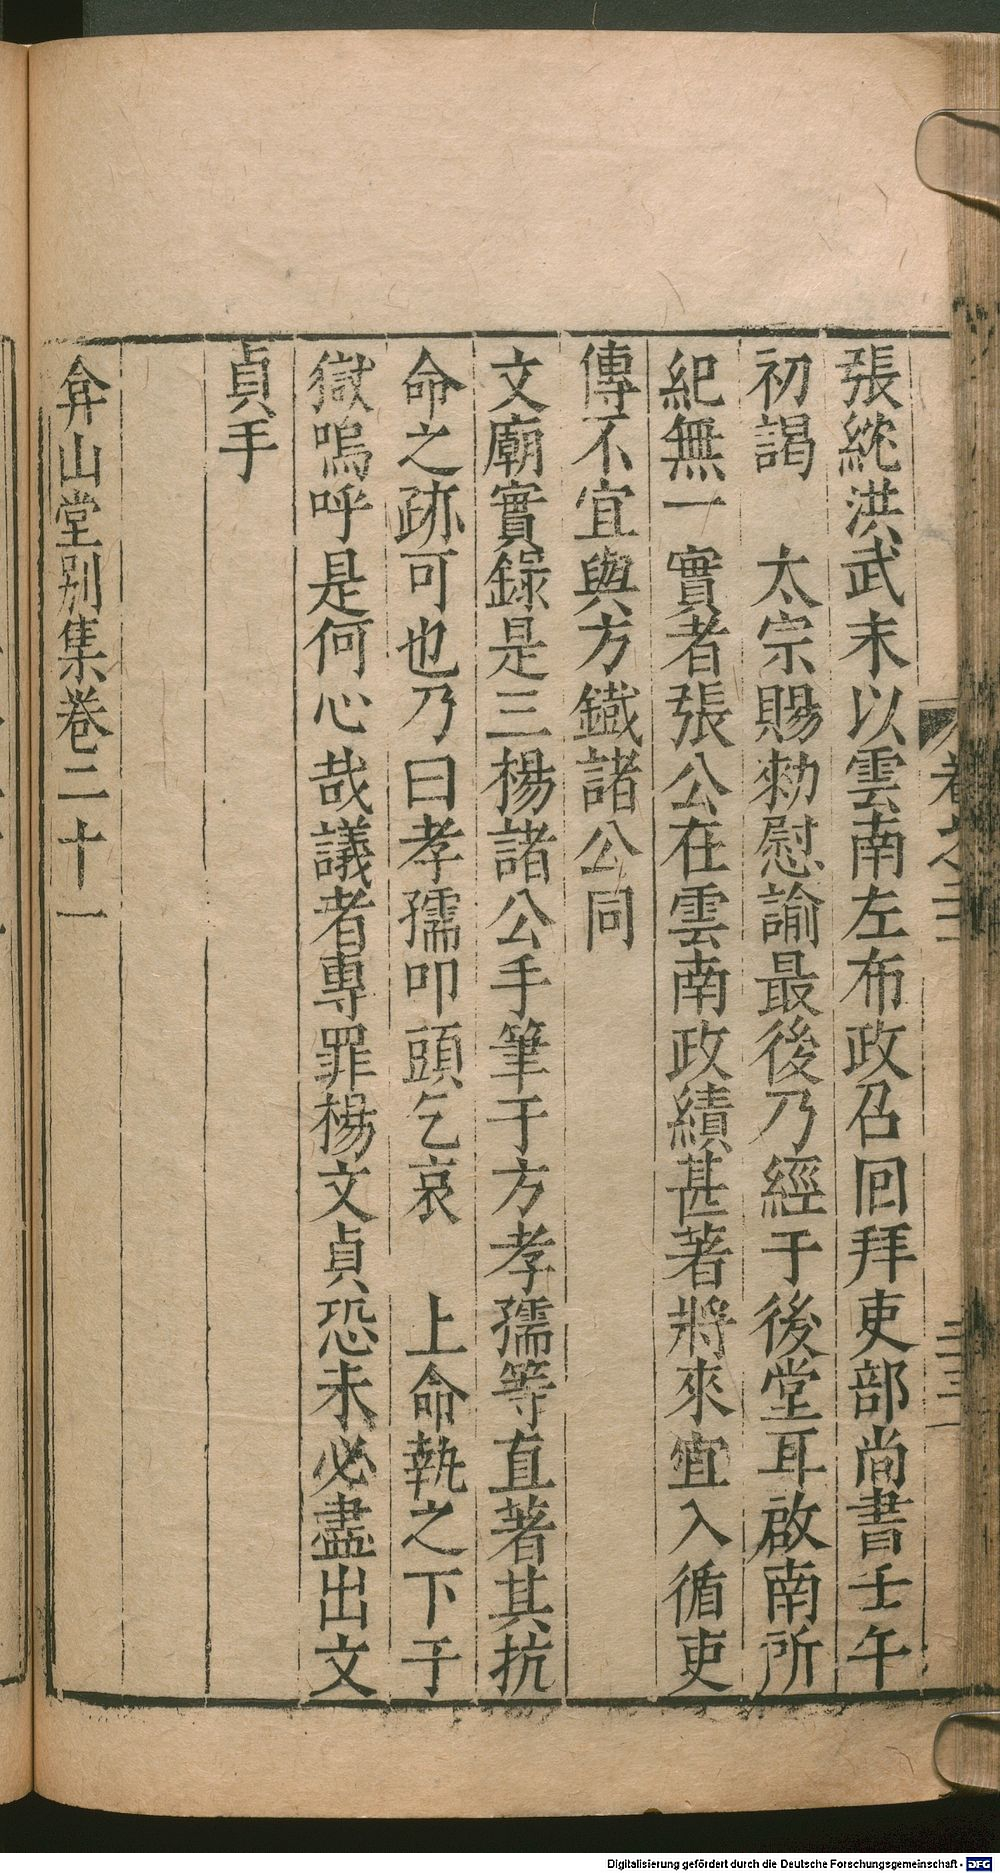 張紞洪武末以雲南左布政召回拜吏部尚書壬午
初謁　太宗賜勑慰諭最後乃經于後堂耳啟南所
紀無一實者張公在雲南政績甚著將來宜入循吏
傳不宜與方鐵諸公同
文廟實錄是三楊諸公手筆于方孝孺等直著其抗
命之跡可也乃曰孝孺叩頭乞哀　上命執之下于
獄嗚呼是何心哉議者專罪楊文貞恐未必盡出文
貞手
弇山堂別集卷二十一
Digitalisierung gefördert durch die Deutsche Forschungsgemeinschaft - DFG